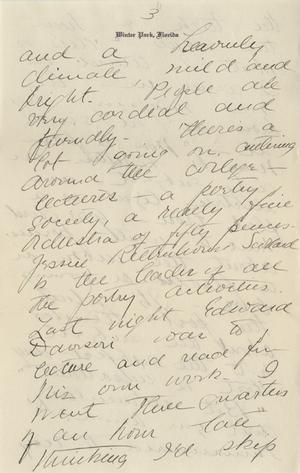 3
Winter Park, Florida
and a heavenly
climate mild and
bright. People are
very cordial and
friendly. There's a
lot going on, centering
around the college —
lectures — a poetry
society, a really fine
orchestra of fifty pieces.
Jessie Rittenhouse Scollard
is the leader of all
the poetry activities.
Last night Edward
Davison was to
lecture and read from
his own work. I
went three quarters
of an hour late
thinking I'd skip